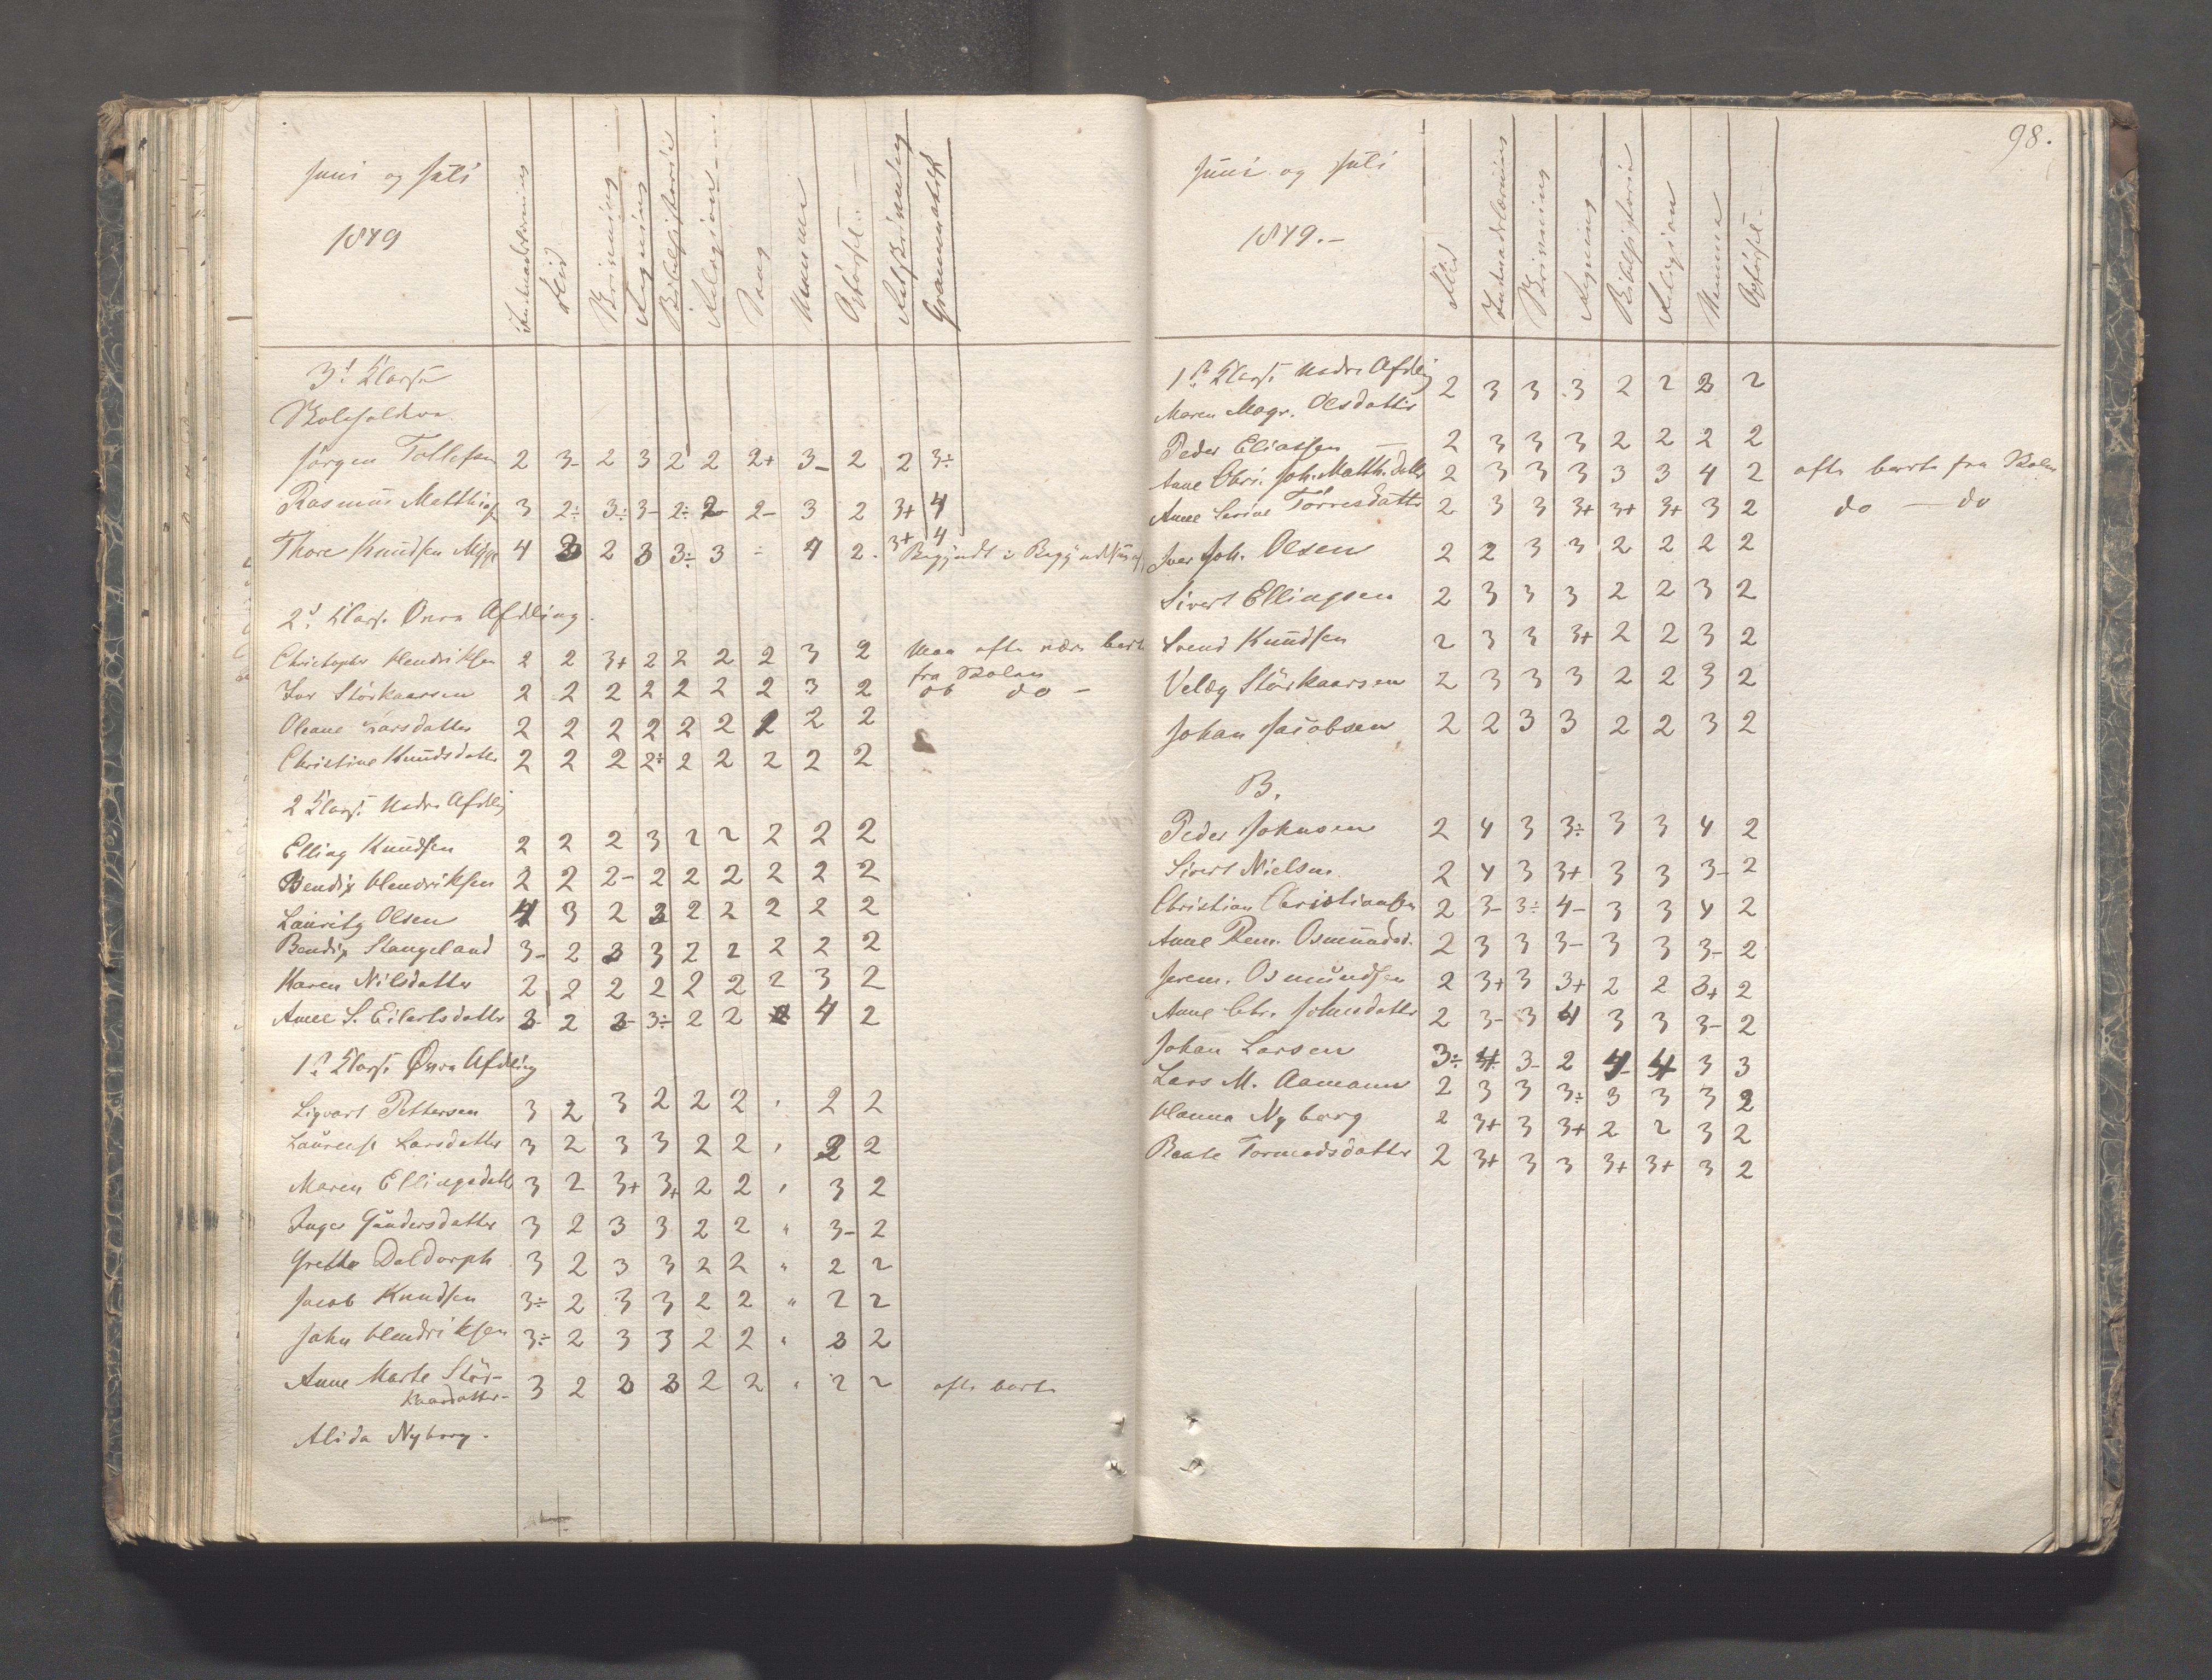 Juni og Juli
1849
Indenadslæsning Flid Skrivning Regning Bibelhistorie Religion Sang Opførsel Retskrivning Grammatik
3d Klasse
Jørgen Tollefsen 2 3- 2 3 2 2 2+ 3- 2 2 3÷
Rasmus Matthias 3 2÷ 3÷ 3- 2÷ 2 2- 3 2 3+ 4
Thore Knudsen 4 3 2 3 3÷ 3 ÷ 4 2. 3+ 4 Begyndt i
2d Klasse Øvre Afdeling.
Christopher Hendriksen 2 2 3+ 2 2 2 2 3 2 Maa ofte være borte
fra Skolen
Iver Störkaarsen 2 2 2 2 2 2 2 3 2 do -
Oleane Larsdatter 2 2 2 2 2 2 2 2 2
Christine Knudsdatter 2 2 2 2÷ 2 2 2 2 2
2 Klasse Nedre Afdeling
Elling Knudsen 2 2 2 3 2 2 2 2 2
Bendix Hendriksen 2 2 2- 2 2 2 2 2 2
Lauritz Olsen 4 3 2 3 2 2 2 2 2
Bendix Stangeland 3- 2 3 3 2 2 2 2 2
Karen Nilsdatter 2 2 2 2 2 2 2 3 2
Anne S. Eilertsdatter 3- 2 3- 3÷ 2 2 2 4 2
1ste Klasse Øvre Afdeling
Sigvart Pettersen 3 2 3 2 2 2 , 2 2
Laurense Larsdatter 3 2 3 3 2 2 , 2 2
Maren Ellingsdatt 3 2 3+ 3+ 2 2 , 3 2
Inger Gundersdatter 3 2 3 3 2 2 " 3- 2
Grethe Daldorph 3 2 3 3 2 2 " 2 2
Jacob Knudsen 3÷ 2 3 3 2 2 " 2 2
John Hendriksen 3÷ 2 3 3 2 2 " 3 2
Anne Marte Stör-
kaarsdatter- 3 2 3 3 2 2 " 2 2 ofte borte
Alida Nyborg.
98.
Juni og Juli
1849.-
Flid Indenadslæsning Skrivning Regning Bibelhistorie Religion Opførsel
1ste Klasse Nedre Afdeling
Maren Magr. Olsdatter 2 3 3 3 2 2 3 2
Peder Eliassen — 2 3 3 3 2 2 2 2
Anne Chri. Joh. Matth. datter 2 3 3 3 3 3 4 2 ofte borte fra Skolen
Anne Serine Törresdatter 2 3 3 3+ 3+ 3+ 3 2 do — do
Iver Joh. Olsen 2 2 3 3 2 2 2 2
Sivert Ellingsen 2 3 3 3 2 2 3 2
Svend Knudsen 2 3 3 3+ 2 2 3 2
Velög Störkaarsen 2 3 3 3 2 2 3 2
Johan Jacobsen 2 2 3 3 2 2 3 2
B.
Peder Johnsen 2 4 3 3÷ 3 3 4 2
Sivert Nielsen 2 4 3 3+ 3 3 3- 2
Christian Christiansen 2 3- 3÷ 4- 3 3 4 2
Anne Rem. Osmundsd. 2 3 3 3- 3 3 3- 2
Jerem. Osmundsen 2 3+ 3 3+ 2 2 3+ 2
Anne Chr. Johnsdatter 2 3- 3 4 3 3 3- 2
Johan Larsen 3÷ 4 3- 2 4- 4 3 3
Lars M. Aamann 2 3 3 3÷ 3 3 3 2
Hanna Nyborg 2 3+ 3 3+ 2 2 3 2
Beate Tormodsdatter 2 3+ 3 3 3+ 3+ 3 2